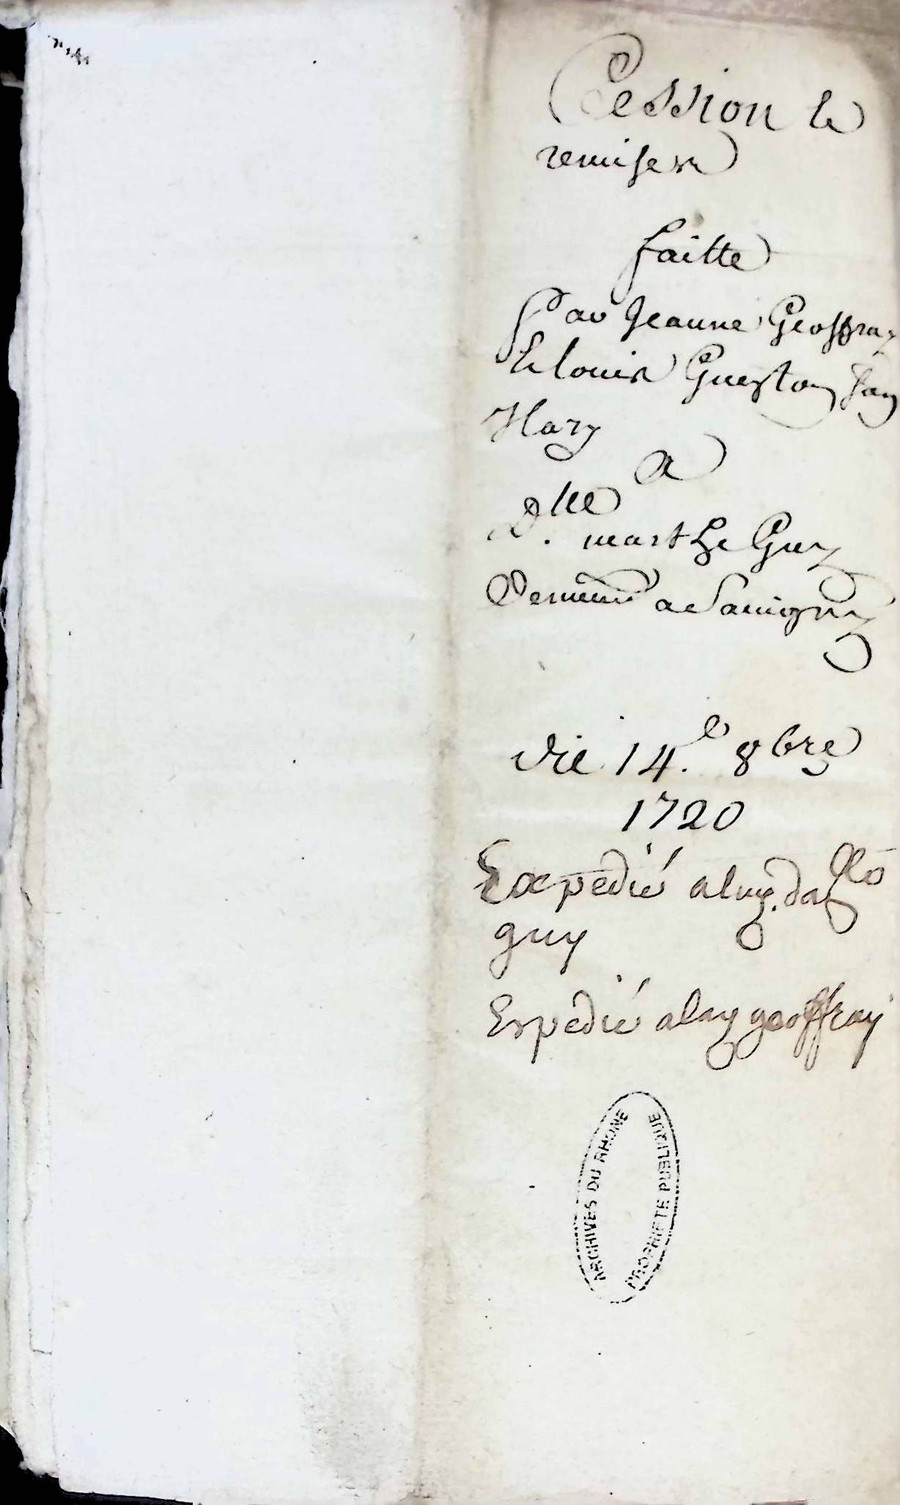 Cession et
remises
faitte
Par Jeanne Geoffray
et louis Gueston son
Mary
A
Dlle. marthe Guy
Demeurt a Savigny
die 14.e 8bre
1720
Expedié a lad. dlle
guy
Expedié a lad geoffray
ARCHIVES DU RHONE
PROPRIETE PUBLIQUE